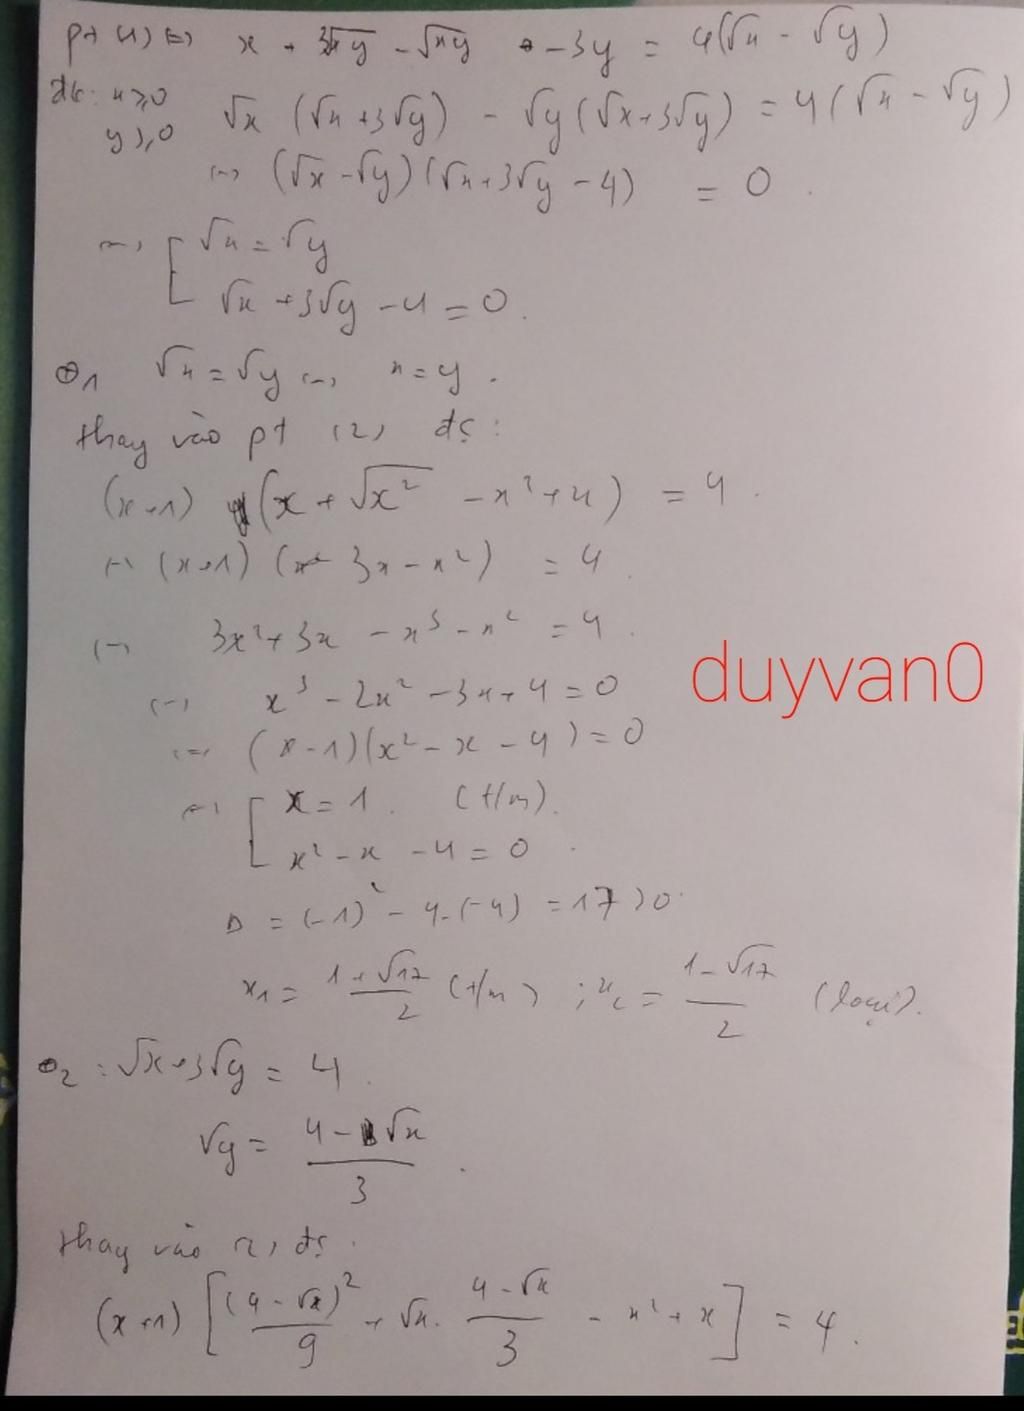 pt (1) ⇔ x + 3√xy - √xy - 3y = 4(√x - √y)
đk: x ≥ 0
y ≥ 0
√x (√x + 3√y) - √y (√x + 3√y) = 4(√x - √y)
⇔ (√x - √y)(√x + 3√y - 4) = 0.
⇔ [ √x = √y
√x + 3√y - 4 = 0.
⊕1 √x = √y ⇔ x = y.
thay vào pt (2) đc:
(x+1) (x + √x² - x² + x) = 4.
⇔ (x+1) (3x - x²) = 4.
⇔ 3x² + 3x - x³ - x² = 4.
⇔ x³ - 2x² - 3x + 4 = 0
⇔ (x - 1)(x² - x - 4) = 0
⇔ [ x = 1. (t/m).
x² - x - 4 = 0.
Δ = (-1)² - 4.(-4) = 17 > 0.
x₁ = (1+√17)/2 (t/m) ; x₂ = (1-√17)/2 (loại).
⊕2 : √x + 3√y = 4.
√y = (4 - √x)/3.
thay vào (2) đc.
(x+1) [(4 - √x)²/9 + √x. (4 - √x)/3 - x² + x] = 4.
duyvan0